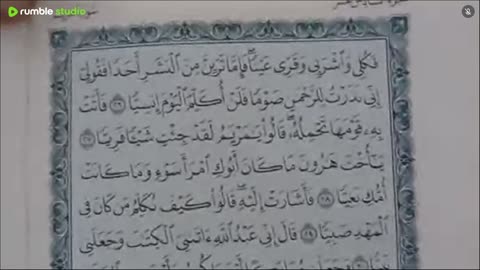 rumble studio
فَكُلِى وَٱشْرَبِى وَقَرِّى عَيْنًا ۖ فَإِمَّا تَرَيِنَّ مِنَ ٱلْبَشَرِ أَحَدًا فَقُولِىٓ
إِنِّى نَذَرْتُ لِلرَّحْمَٰنِ صَوْمًا فَلَنْ أُكَلِّمَ ٱلْيَوْمَ إِنسِيًّا ٢٦ فَأَتَتْ
بِهِۦ قَوْمَهَا تَحْمِلُهُۥ ۖ قَالُوا۟ يَٰمَرْيَمُ لَقَدْ جِئْتِ شَيْـًٔا فَرِيًّا ٢٧
يَٰٓأُخْتَ هَٰرُونَ مَا كَانَ أَبُوكِ ٱمْرَأَ سَوْءٍ وَمَا كَانَتْ
أُمُّكِ بَغِيًّا ٢٨ فَأَشَارَتْ إِلَيْهِ ۖ قَالُوا۟ كَيْفَ نُكَلِّمُ مَن كَانَ فِى
ٱلْمَهْدِ صَبِيًّا ٢٩ قَالَ إِنِّى عَبْدُ ٱللَّهِ ءَاتَىٰنِىَ ٱلْكِتَٰبَ وَجَعَلَنِى